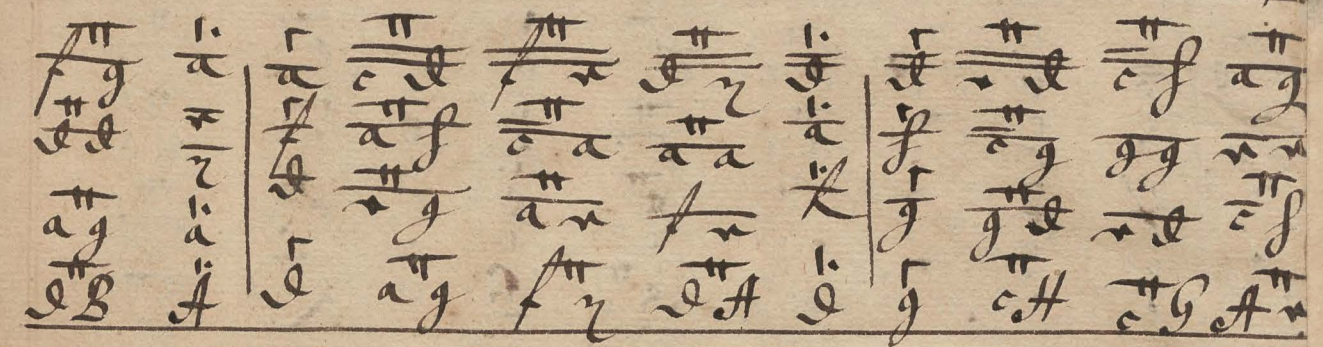 f g a a c d f e d cs d d e d c h a g
d d e cs f a h c a a a a h c g g g e e
a g a d e g a e f e fs g g d e d c h
d B A d a g f cs d A d g c H c G A e